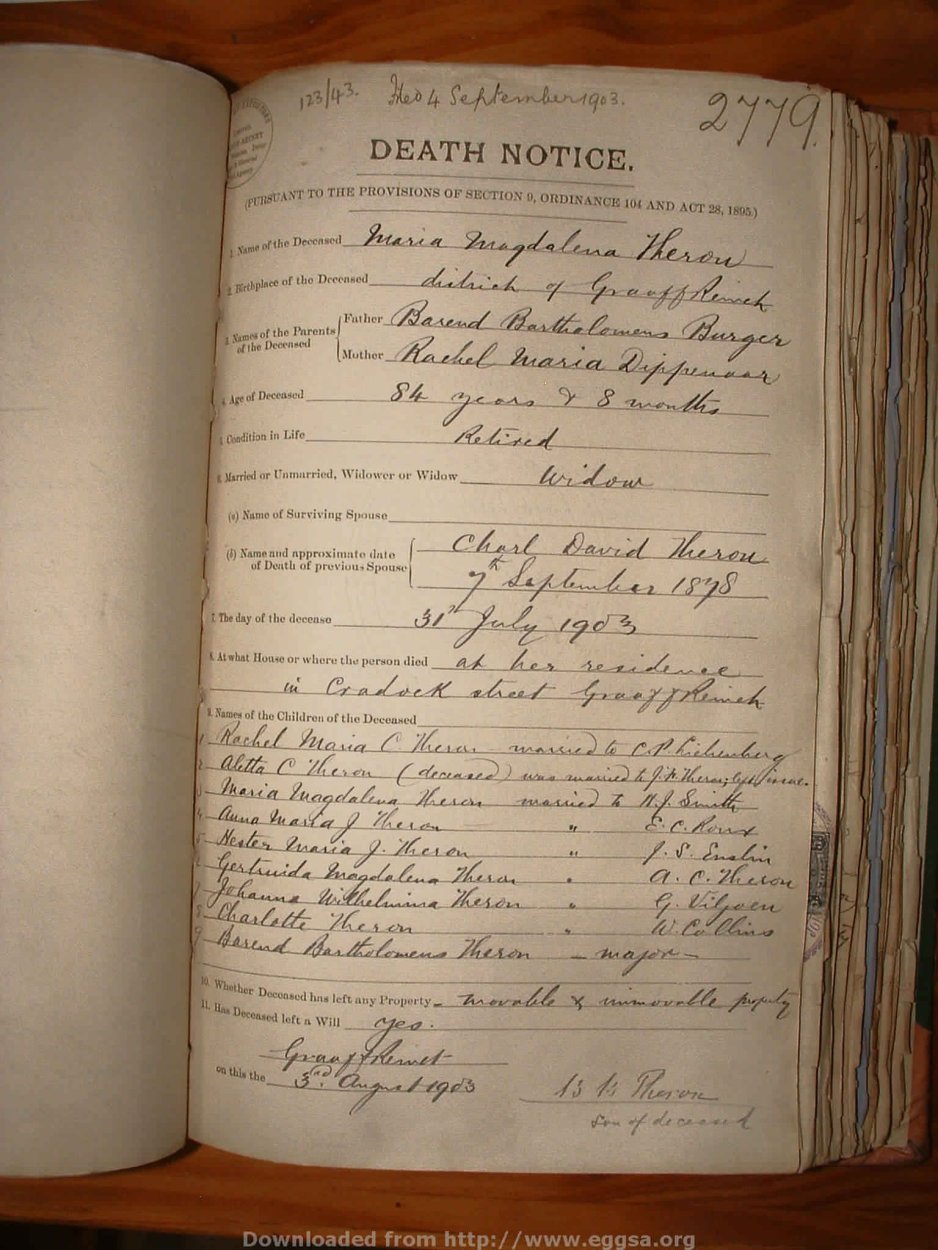 123/43. Filed 4 September 1903. 2779.
DEATH NOTICE.
(PURSUANT TO THE PROVISIONS OF SECTION 9, ORDINANCE 104 AND ACT 28, 1895.)
1. Name of the Deceased Maria Magdalena Theron
2. Birthplace of the Deceased district of Graaff Reinet
3. Names of the Parents of the Deceased
Father Barend Bartholomeus Burger
Mother Rachel Maria Dippenaar
4. Age of Deceased 84 years & 8 months
5. Condition in Life Retired
6. Married or Unmarried, Widower or Widow Widow
(a) Name of Surviving Spouse
(b) Name and approximate date of Death of previous Spouse
Charl David Theron
7th September 1878
7. The day of the decease 31st July 1903
8. At what House or where the person died at her residence
in Cradock street Graaff Reinet
9. Names of the Children of the Deceased
1 Rachel Maria C. Theron married to C.P. Liebenberg
2 Aletta C Theron (deceased) was married to J.F. Theron; left issue.
3 Maria Magdalena Theron married to N.J. Smith
4 Anna Maria J Theron " E.C. Roux
5 Hester Maria J. Theron " J.S. Enslin
6 Gertruida Magdalena Theron " A.C. Theron
7 Johanna Wilhelmina Theron " G. Viljoen
8 Charlotte Theron " W. Collins
9 Barend Bartholomeus Theron - major -
10. Whether Deceased has left any Property - movable & immovable property
11. Has Deceased left a Will yes.
Graaff Reinet
on this the 3rd August 1903
B B Theron
Son of deceased
Downloaded from http://www.eggsa.org